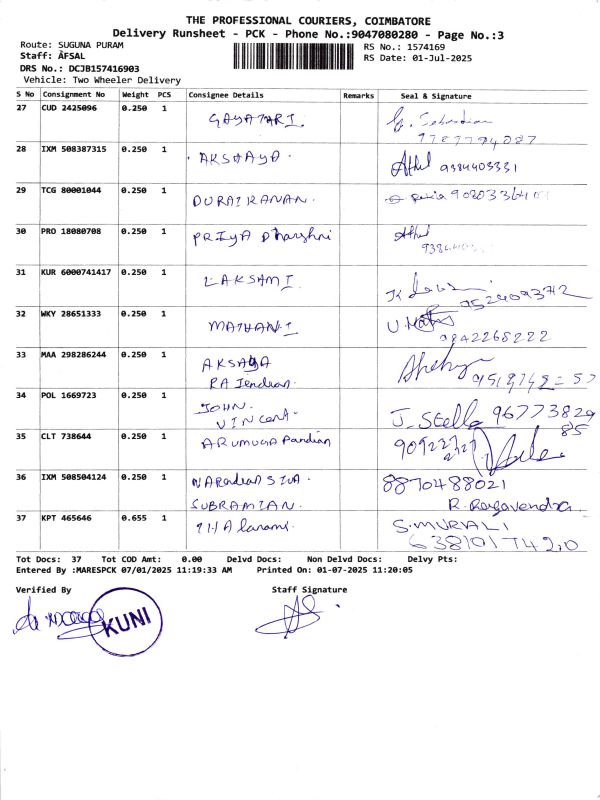 THE PROFESSIONAL COURIERS, COIMBATORE
Delivery Runsheet - PCK - Phone No.:9047080280 - Page No.:3
Route: SUGUNA PURAM
RS No.: 1574169
Staff: ÀFSAL
RS Date: 01-Jul-2025
DRS No.: DCJB157416903
Vehicle: Two Wheeler Delivery
S No Consignment No Weight PCS Consignee Details Remarks Seal & Signature
27 CUD 2425096 0.250 1 GAYATARI
28 IXM 508387315 0.250 1 AKSHAYA Athul 9384403331
29 TCG 80001044 0.250 1 DURAIKANAN
30 PRO 18080708 0.250 1 PRIYA Dharshni Athul
31 KUR 6000741417 0.250 1 LAKSAMI 9524093712
32 WKY 28651333 0.250 1 MATHANI
9842268222
33 MAA 298286244 0.250 1 AKSAYA
RAJendran
34 POL 1669723 0.250 1 JOHN J. Stella 96773829
VINCent 85
35 CLT 738644 0.250 1 ARUMUGA Pandian
36 IXM 508504124 0.250 1 NARendran SIVA 8870488021
SUBRAMIAN R. Ragavendra
37 KPT 465646 0.655 1 S.MURALI
6381017420
Tot Docs: 37 Tot COD Amt: 0.00 Delvd Docs: Non Delvd Docs: Delvy Pts:
Entered By :MARESPCK 07/01/2025 11:19:33 AM Printed On: 01-07-2025 11:20:05
Verified By Staff Signature
KUNI